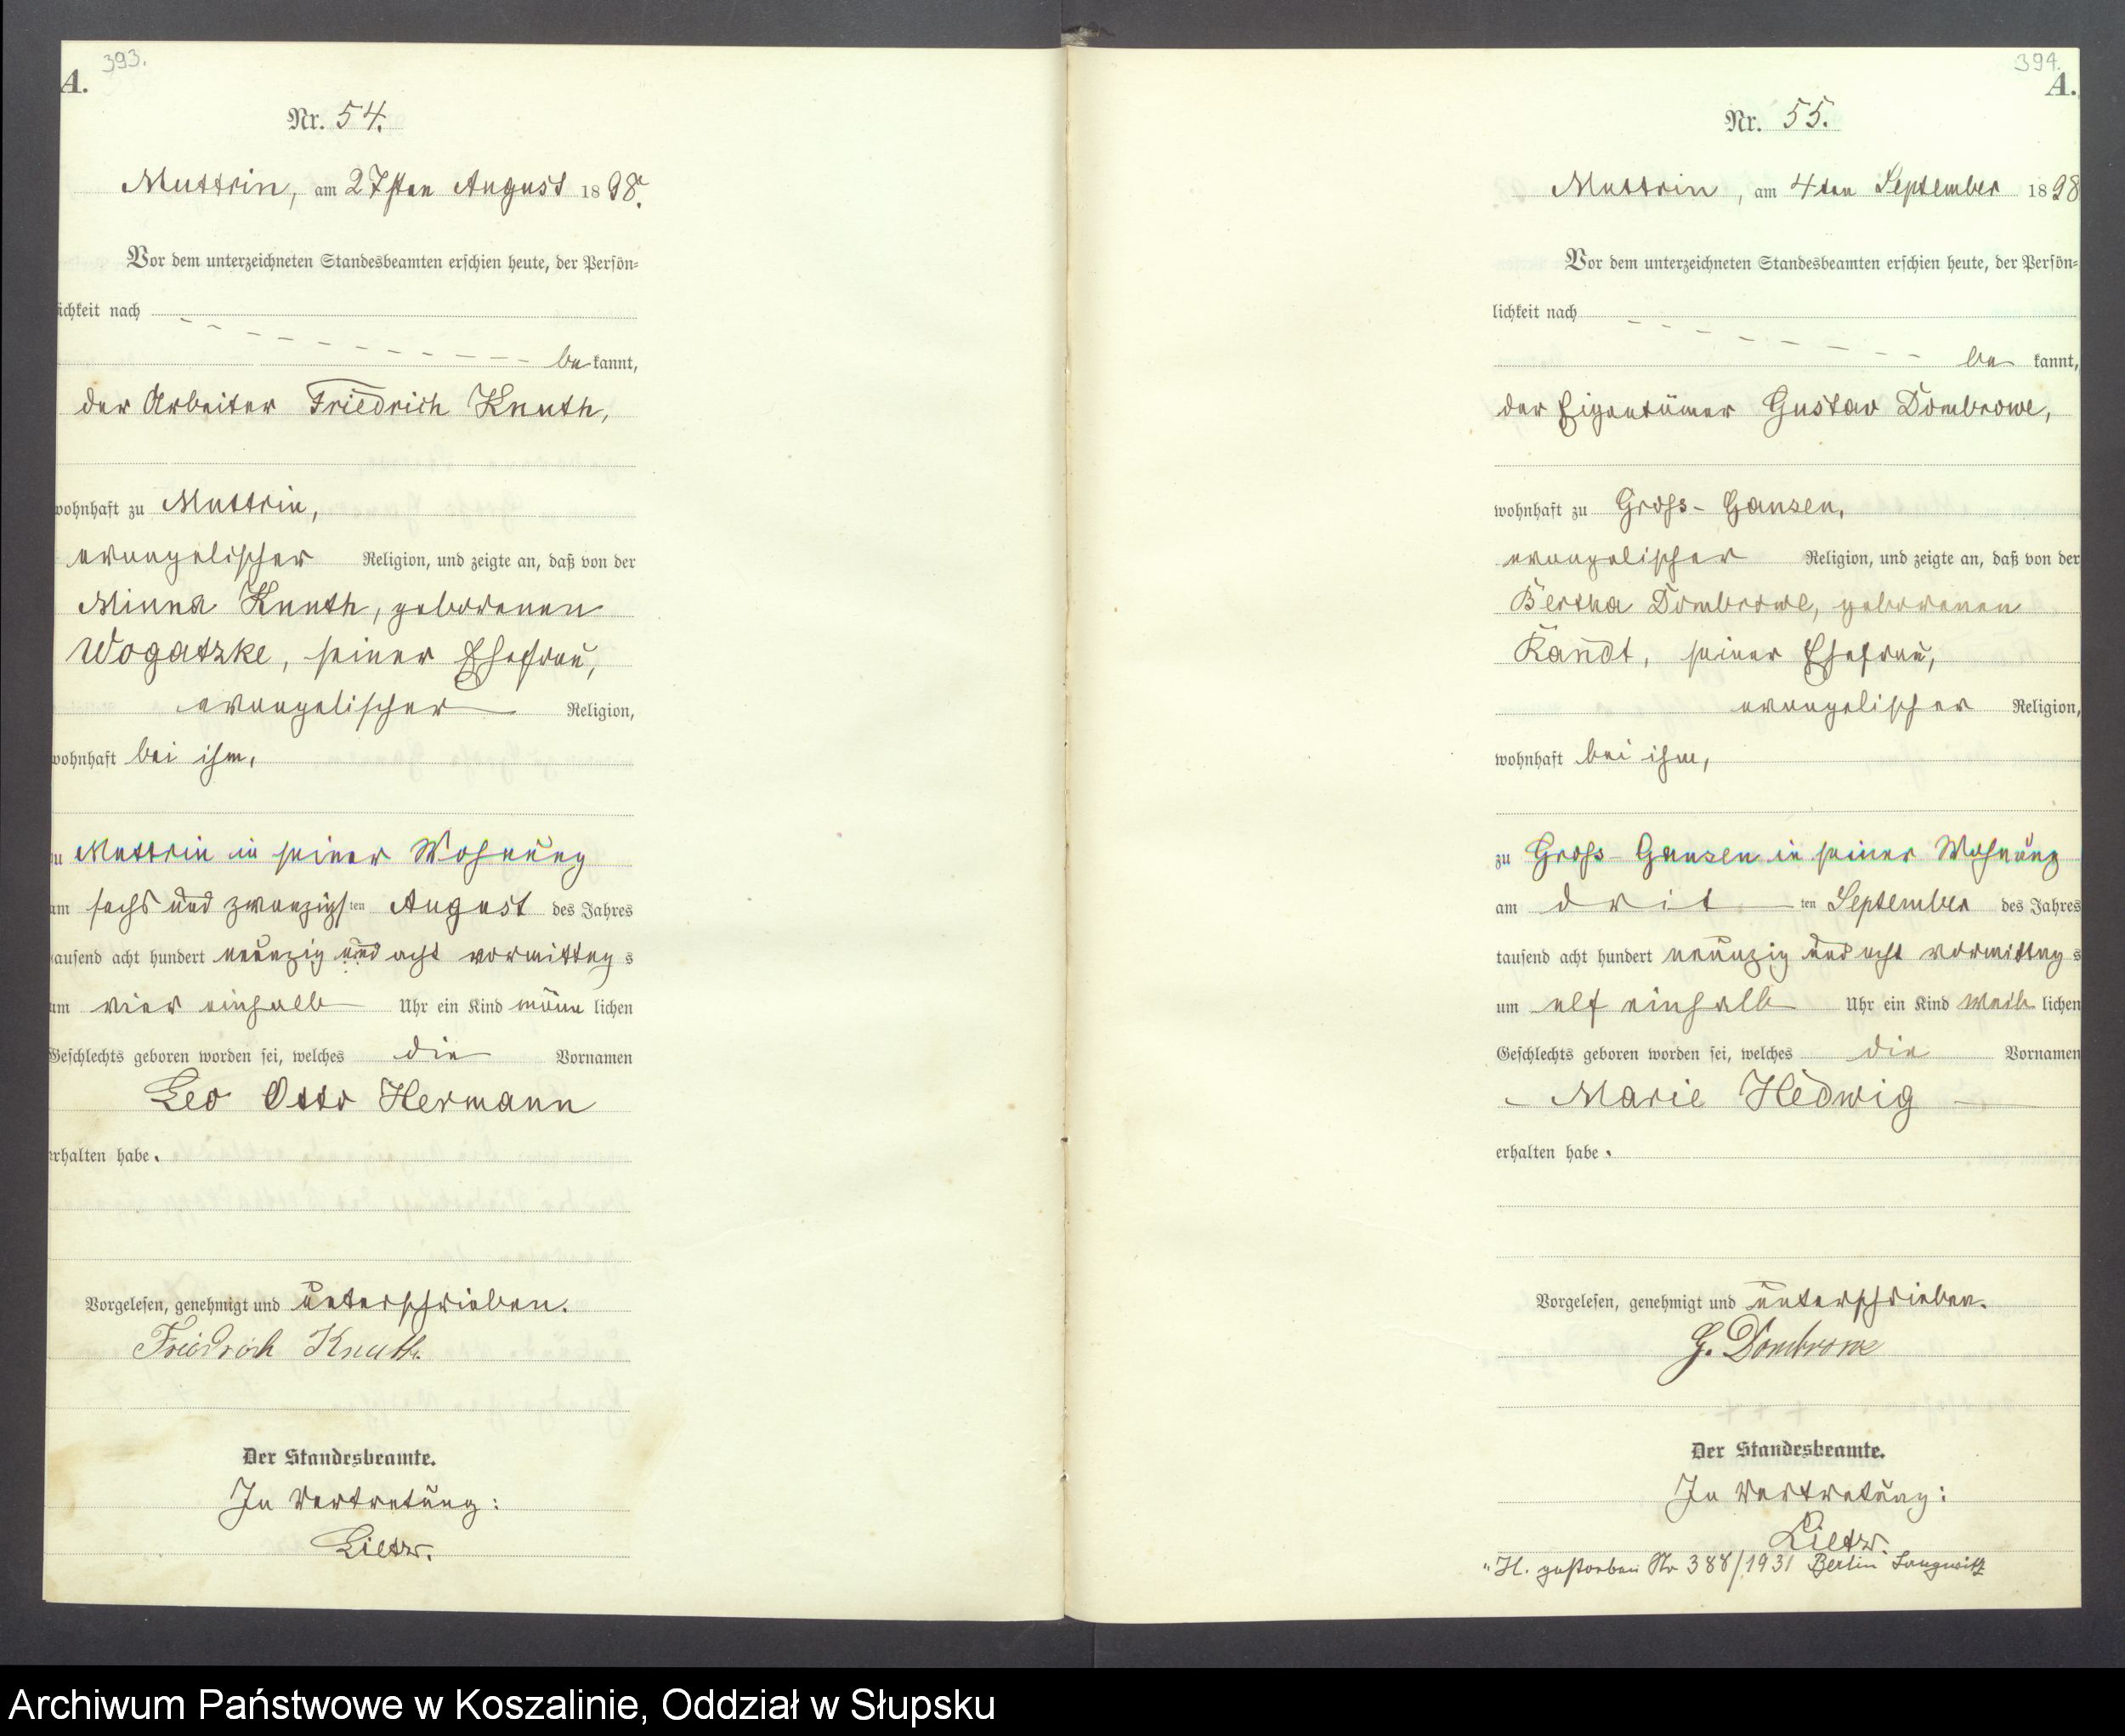 393.
A.
Nr. 54.
Muttrin, am 27sten August 1898.
Vor dem unterzeichneten Standesbeamten erschien heute, der Persön-
lichkeit nach
be kannt,
der Arbeiter Friedrich Knuth,
wohnhaft zu Muttrin,
evangelischer Religion, und zeigte an, daß von der
Minna Knuth, geborenen
Wogatzke, seiner Ehefrau,
evangelischer Religion,
wohnhaft bei ihm,
zu Muttrin in seiner Wohnung
am sechs und zwanzigsten August des Jahres
tausend acht hundert neunzig und acht vormittags
um vier einhalb Uhr ein Kind männlichen
Geschlechts geboren worden sei, welches die Vornamen
Leo Otto Hermann
erhalten habe.
Vorgelesen, genehmigt und unterschrieben.
Friedrich Knuth.
Der Standesbeamte.
In Vertretung:
Lietz.
394.
A.
Nr. 55.
Muttrin, am 4ten September 1898
Vor dem unterzeichneten Standesbeamten erschien heute, der Persön-
lichkeit nach
be kannt,
der Eigentümer Gustav Dombrowe,
wohnhaft zu Gross-Gansen,
evangelischer Religion, und zeigte an, daß von der
Bertha Dombrowe, geborenen
Kandt, seiner Ehefrau,
evangelischer Religion,
wohnhaft bei ihm,
zu Gross-Gansen in seiner Wohnung
am dritten September des Jahres
tausend acht hundert neunzig und acht vormittags
um elf einhalb Uhr ein Kind weiblichen
Geschlechts geboren worden sei, welches die Vornamen
Marie Hedwig
erhalten habe.
Vorgelesen, genehmigt und unterschrieben.
G. Dombrowe
Der Standesbeamte.
In Vertretung:
Lietz.
H. gestorben Nr 388/1931 Berlin Langwitz
Archiwum Państwowe w Koszalinie, Oddział w Słupsku